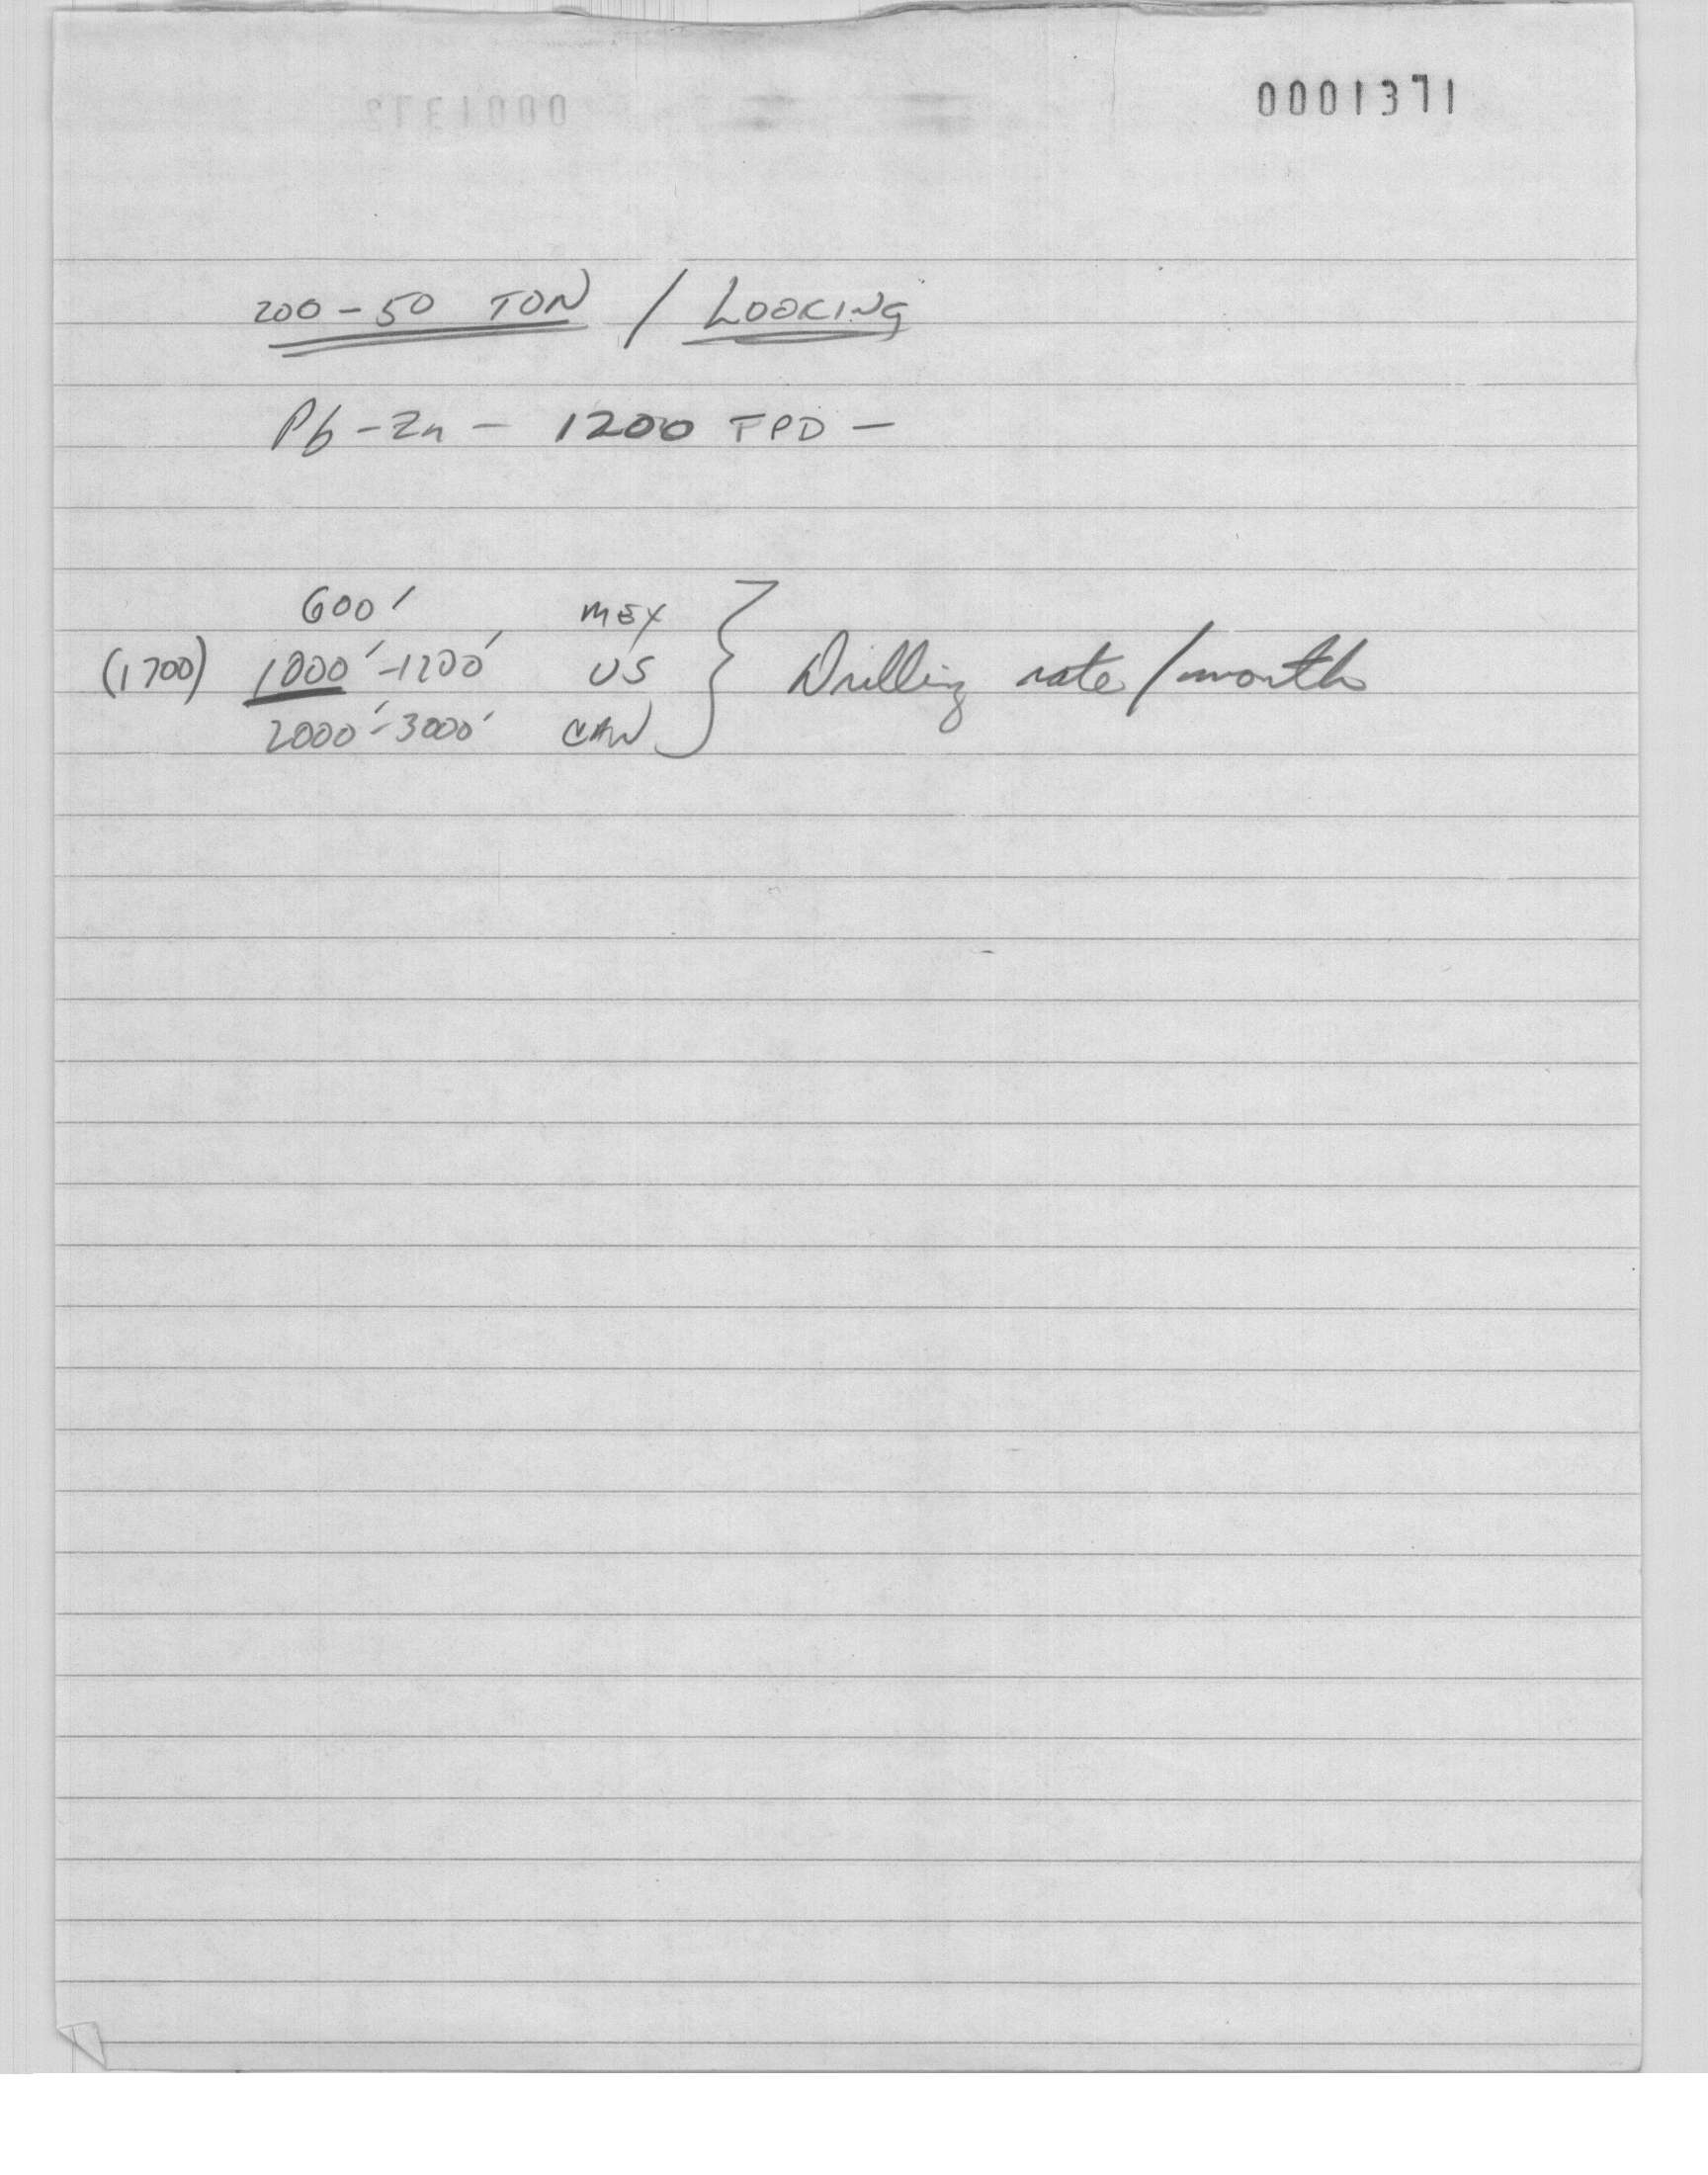 0001371
200-50 TON / LOOKING
Pb-Zn - 1200 TPD -
600' MEX
(1700) 1000'-1200' US } Drilling rate/month
2000'-3000' CAN